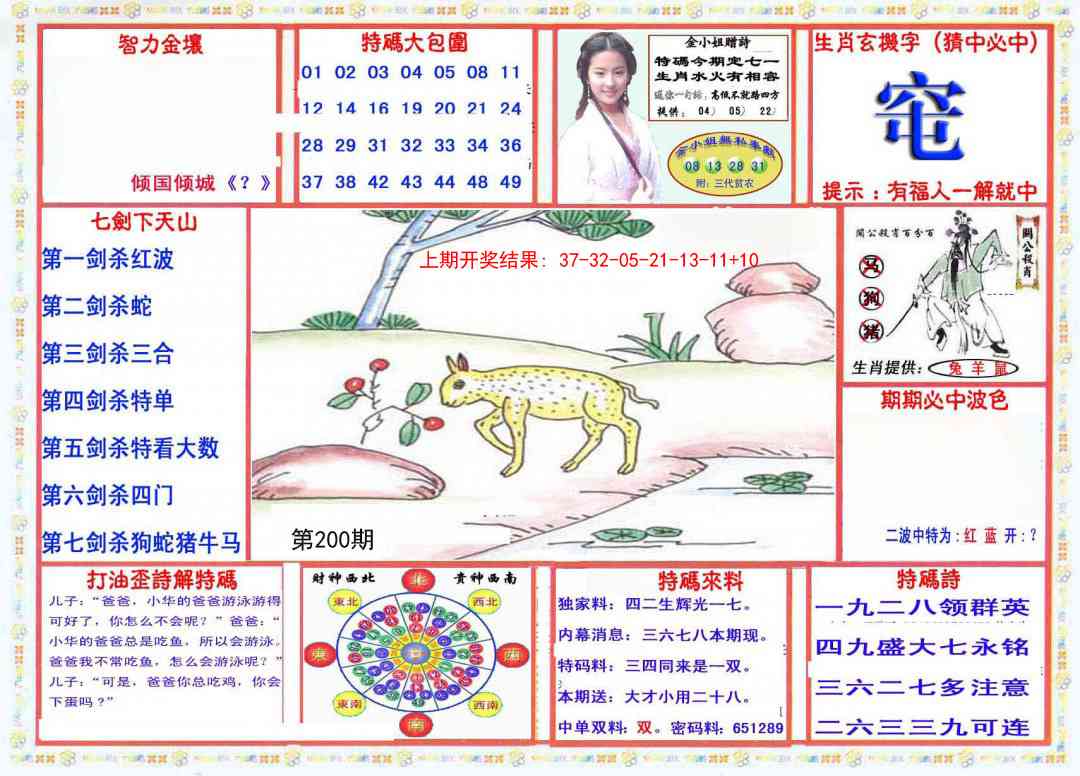 智力金壤
倾国倾城《？》
特碼大包圍
01 02 03 04 05 08 11
12 14 16 19 20 21 24
28 29 31 32 33 34 36
37 38 42 43 44 48 49
金小姐赠詩
特碼今期定七一
生肖水火有相容
送你一句话，高低不就踏四方
提供： 04） 05） 22）
金小姐無私奉献
08 13 28 31
附：三代贫农
生肖玄機字（猜中必中）
提示：有福人一解就中
七劍下天山
第一剑杀红波
第二剑杀蛇
第三剑杀三合
第四剑杀特单
第五剑杀特看大数
第六剑杀四门
第七剑杀狗蛇猪牛马
上期开奖结果: 37-32-05-21-13-11+10
第200期
關公殺肖百分百
關公殺肖
马
狗
猪
生肖提供： 兔 羊 鼠
期期必中波色
二波中特为：红 蓝 开：？
打油歪詩解特碼
儿子：“爸爸，小华的爸爸游泳游得
可好了，你怎么不会呢？”爸爸：“
小华的爸爸总是吃鱼，所以会游泳。
爸爸我不常吃鱼，怎么会游泳呢？”
儿子：“可是，爸爸你总吃鸡，你会
下蛋吗？”
财神西北 贵神西南
北
東北 西北
東 西
東南 西南
南
特碼來料
独家料：四二生辉光一七。
内幕消息：三六七八本期现。
特码料：三四同来是一双。
本期送：大才小用二十八。
中单双料：双。密码料：651289
特碼詩
一九二八领群英
四九盛大七永铭
三六二七多注意
二六三三九可连